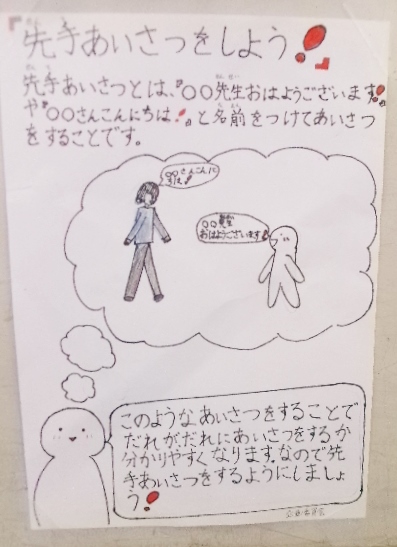 『先手あいさつをしよう!』
先手あいさつとは、『○○先生おはようございます!』
や『○○さんこんにちは!』と名前をつけてあいさつ
をすることです。
○○さんこんに
ちは!
○○先生
おはようございます!
このようなあいさつをすることで
だれがだれにあいさつをするか
分かりやすくなります。なので先
手あいさつをするようにしましょ
う!